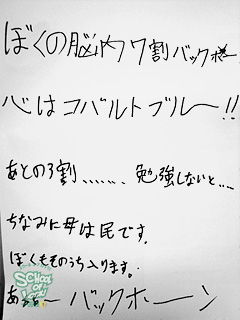 ぼくの脳内7割バックホーン
心はコバルトブルー!!
あとの3割、、、、、、勉強しないと、、、
ちなみに母は民です。
ぼくもそのうち入ります。
あぁぁ〜バックホーン
SCHOOL OF LOCK!